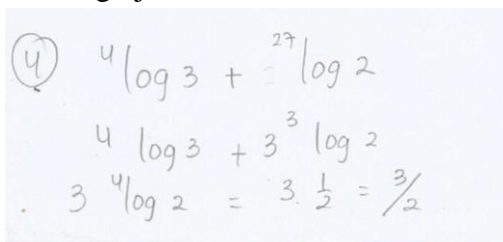 ④ ⁴log 3 + ²⁷log 2
4 log 3 + 3³ log 2
3 ⁴log 2 = 3. 1/2 = 3/2